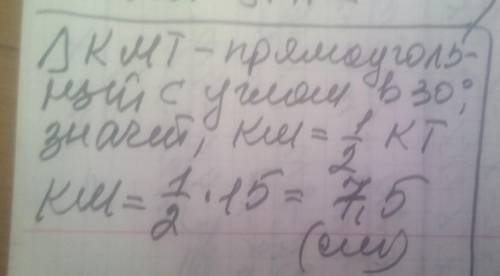 Δ КМТ – прямоуголь-
ный с углом в 30°,
значит, КМ = 1/2 КТ
КМ = 1/2 · 15 = 7,5
(см)